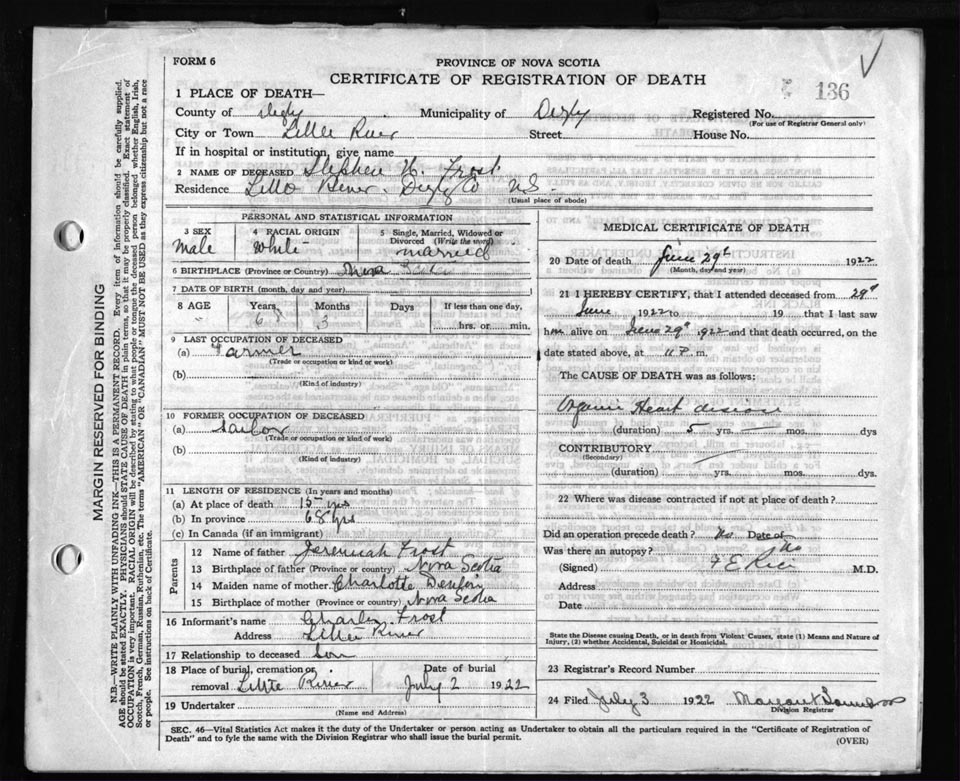 FORM 6
PROVINCE OF NOVA SCOTIA
CERTIFICATE OF REGISTRATION OF DEATH
136
1 PLACE OF DEATH—
County of Digby Municipality of Digby Registered No.
(For use of Registrar General only)
City or Town Little River Street House No.
If in hospital or institution, give name
2 NAME OF DECEASED Stephen H. Frost
Residence Little River Digby Co N.S.
(Usual place of abode)
PERSONAL AND STATISTICAL INFORMATION
3 SEX Male
4 RACIAL ORIGIN White
5 Single, Married, Widowed or Divorced (Write the word) married
6 BIRTHPLACE (Province or Country) Nova Scotia
7 DATE OF BIRTH (month, day and year)
8 AGE Years 68 Months 3 Days If less than one day, hrs. or min.
9 LAST OCCUPATION OF DECEASED
(a) Farmer
(Trade or occupation or kind of work)
(b)
(Kind of industry)
10 FORMER OCCUPATION OF DECEASED
(a)
(Trade or occupation or kind of work)
(b)
(Kind of industry)
11 LENGTH OF RESIDENCE (In years and months)
(a) At place of death 15 yrs
(b) In province 68 yrs
(c) In Canada (if an immigrant)
Parents
12 Name of father Jeremiah Frost
13 Birthplace of father (Province or country) Nova Scotia
14 Maiden name of mother Charlotte
15 Birthplace of mother (Province or country) Nova Scotia
16 Informant's name Charles Frost
Address Little River
17 Relationship to deceased Son
18 Place of burial, cremation or removal Little River Date of burial July 2 1922
19 Undertaker
(Name and Address)
MEDICAL CERTIFICATE OF DEATH
20 Date of death June 29th 1922
(Month, day and year)
21 I HEREBY CERTIFY, that I attended deceased from 29th
June 1922 to 19 that I last saw
him alive on June 29th 1922 and that death occurred, on
date stated above, at 11 P. m.
The CAUSE OF DEATH was as follows:
Organic Heart disease
(duration) 5 yrs. — mos. dys
CONTRIBUTORY
(Secondary)
(duration) yrs. mos. dys.
22 Where was disease contracted if not at place of death?
Did an operation precede death? No Date of
Was there an autopsy? No
(Signed) M.D.
Address
Date
State the Disease causing Death, or in death from Violent Causes, state (1) Means and Nature of
Injury, (2) whether Accidental, Suicidal or Homicidal.
23 Registrar's Record Number
24 Filed July 3 1922 Margaret
Division Registrar
SEC. 46—Vital Statistics Act makes it the duty of the Undertaker or person acting as Undertaker to obtain all the particulars required in the "Certificate of Registration of
Death" and to fyle the same with the Division Registrar who shall issue the burial permit.
(OVER)
MARGIN RESERVED FOR BINDING
N.B.—WRITE PLAINLY WITH UNFADING INK—THIS IS A PERMANENT RECORD. Every item of information should be carefully supplied.
AGE should be stated EXACTLY. PHYSICIANS should STATE CAUSE OF DEATH in plain terms, so that it may be properly classified. Exact statement of
OCCUPATION is very important. RACIAL ORIGIN will be described by stating to what people or tongue the deceased person belonged whether English, Irish,
Scotch, French, German, Russian, Ruthenian, etc. The terms "AMERICAN" OR "CANADIAN" MUST NOT BE USED as they express citizenship but not a race
or people. See instructions on back of Certificate.